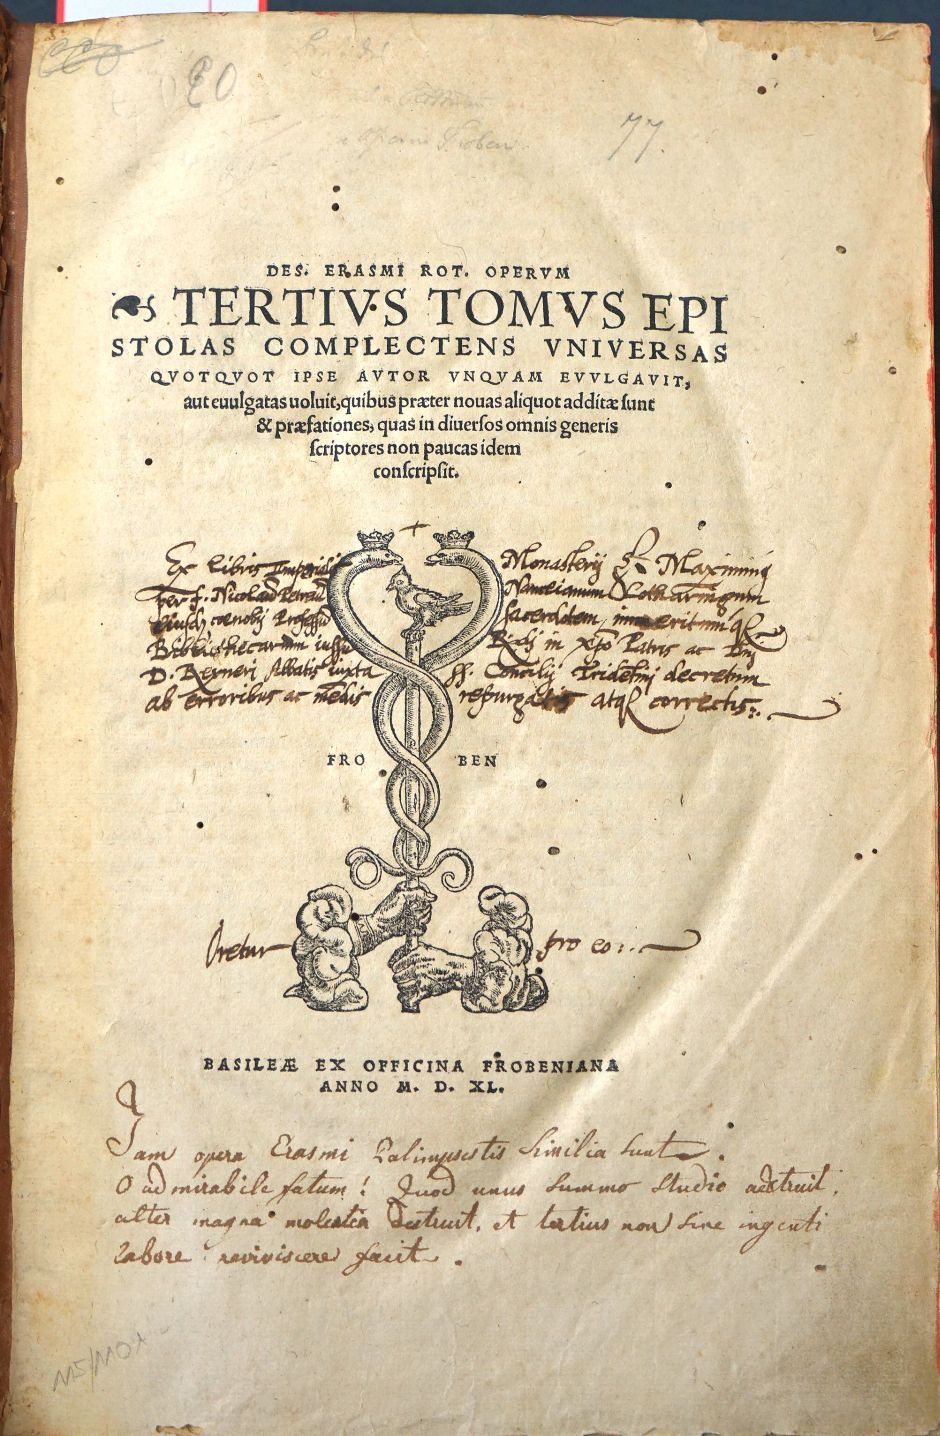 EO
77.
DES. ERASMI ROT. OPERVM
TERTIVS TOMVS EPI
STOLAS COMPLECTENS VNIVERSAS
QVOTQVOT IPSE AVTOR VNQVAM EVVLGAVIT,
aut euulgatas uoluit, quibus præter nouas aliquot additæ sunt
& præfationes, quas in diuersos omnis generis
scriptores non paucas idem
conscripsit.
Ex libris Imperialis Monasterij S. Maximini
per f. Nicolaū Nanceianum Lotharingum
eiusdē cœnobij sacerdotem, immeritum q̄
Bibliothecarium iussu Rdi in xp̄o Patris ac Dn̄i
D. Reyneri Abbatis iuxta ss. Concilij Tridetinj decretum
ab erroribus ac mēdis repurgatis atq̄ correctis
FRO BEN
Oretur pro eo
BASILEÆ EX OFFICINA FROBENIANA
ANNO M. D. XL.
Jam opera Erasmi Palimpsestis Similia sunt.
O admirabile fatum! Quod unus summo studio adstruit,
alter magna molestia destruit, et tertius non sine ingenti
labore reviviscere facit.